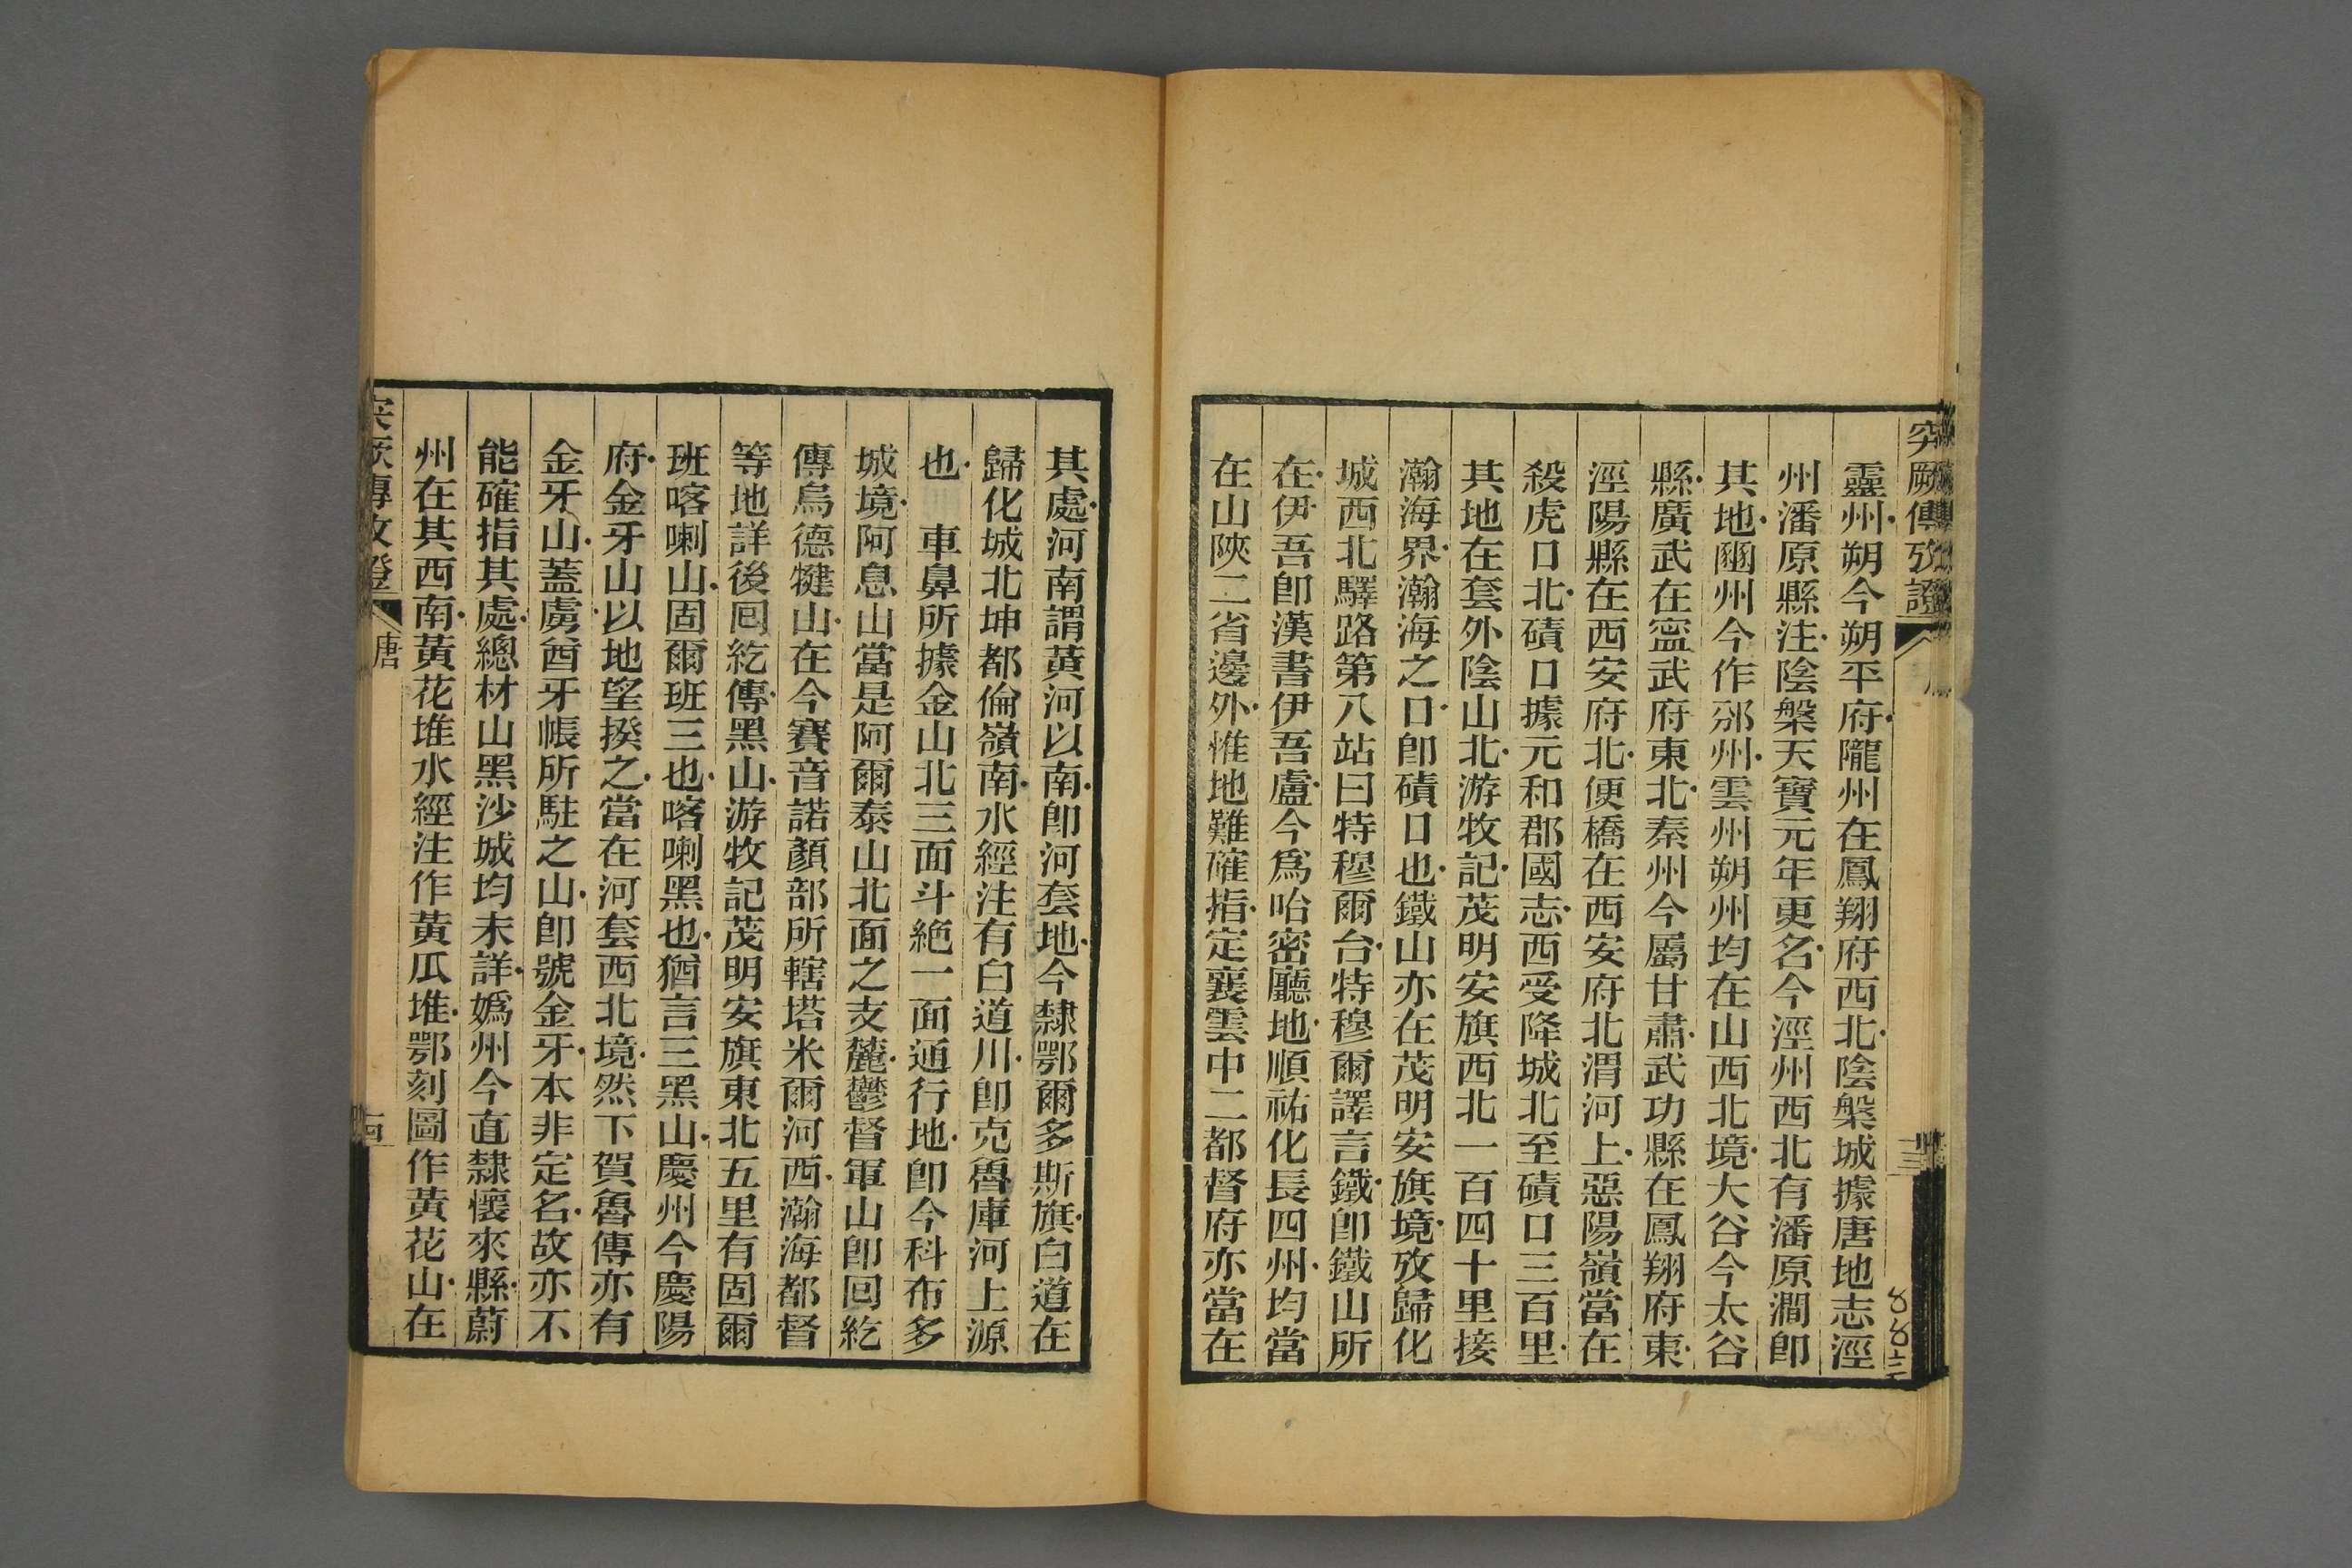 突厥傳攷證
靈州朔今朔平府隴州在鳳翔府西北陰槃城據唐地志涇
州潘原縣注陰槃天寶元年更名今涇州西北有潘原澗卽
其地豳州今作邠州雲州朔州均在山西北境大谷今太谷
縣廣武在寍武府東北秦州今屬甘肅武功縣在鳳翔府東
涇陽縣在西安府北便橋在西安府北渭河上惡陽嶺當在
殺虎口北磧口據元和郡國志西受降城北至磧口三百里
其地在套外陰山北游牧記茂明安旗西北一百四十里接
瀚海界瀚海之口卽磧口也鐵山亦在茂明安旗境攷歸化
城西北驛路第八站曰特穆爾台特穆爾譯言鐵卽鐵山所
在伊吾卽漢書伊吾盧今爲哈密廳地順祐化長四州均當
在山陝二省邊外惟地難確指定襄雲中二都督府亦當在
其處河南謂黃河以南卽河套地今隸鄂爾多斯旗白道在
歸化城北坤都倫嶺南水經注有白道川卽克魯庫河上源
也　車鼻所據金山北三面斗絶一面通行地卽今科布多
城境阿息山當是阿爾泰山北面之支麓鬱督軍山卽回紇
傳烏德犍山在今賽音諾顏部所轄塔米爾河西瀚海都督
等地詳後回紇傳黑山游牧記茂明安旗東北五里有固爾
班喀喇山固爾班三也喀喇黑也猶言三黑山慶州今慶陽
府金牙山以地望揆之當在河套西北境然下賀魯傳亦有
金牙山蓋虜酋牙帳所駐之山卽號金牙本非定名故亦不
能確指其處總材山黑沙城均未詳媯州今直隸懷來縣蔚
州在其西南黃花堆水經注作黃瓜堆鄂刻圖作黃花山在
突厥傳攷證　唐